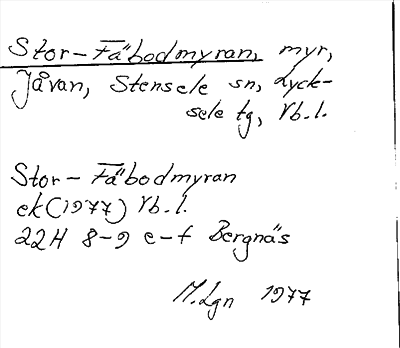 Stor-Fäbodmyran, myr,
Jåvan, Stensele sn, Lyck-
sele tg, Vb. l.
Stor-Fäbodmyran
ek (1977) Vb. l.
22H 8-9 e-f Bergnäs
M. Lgn 1977